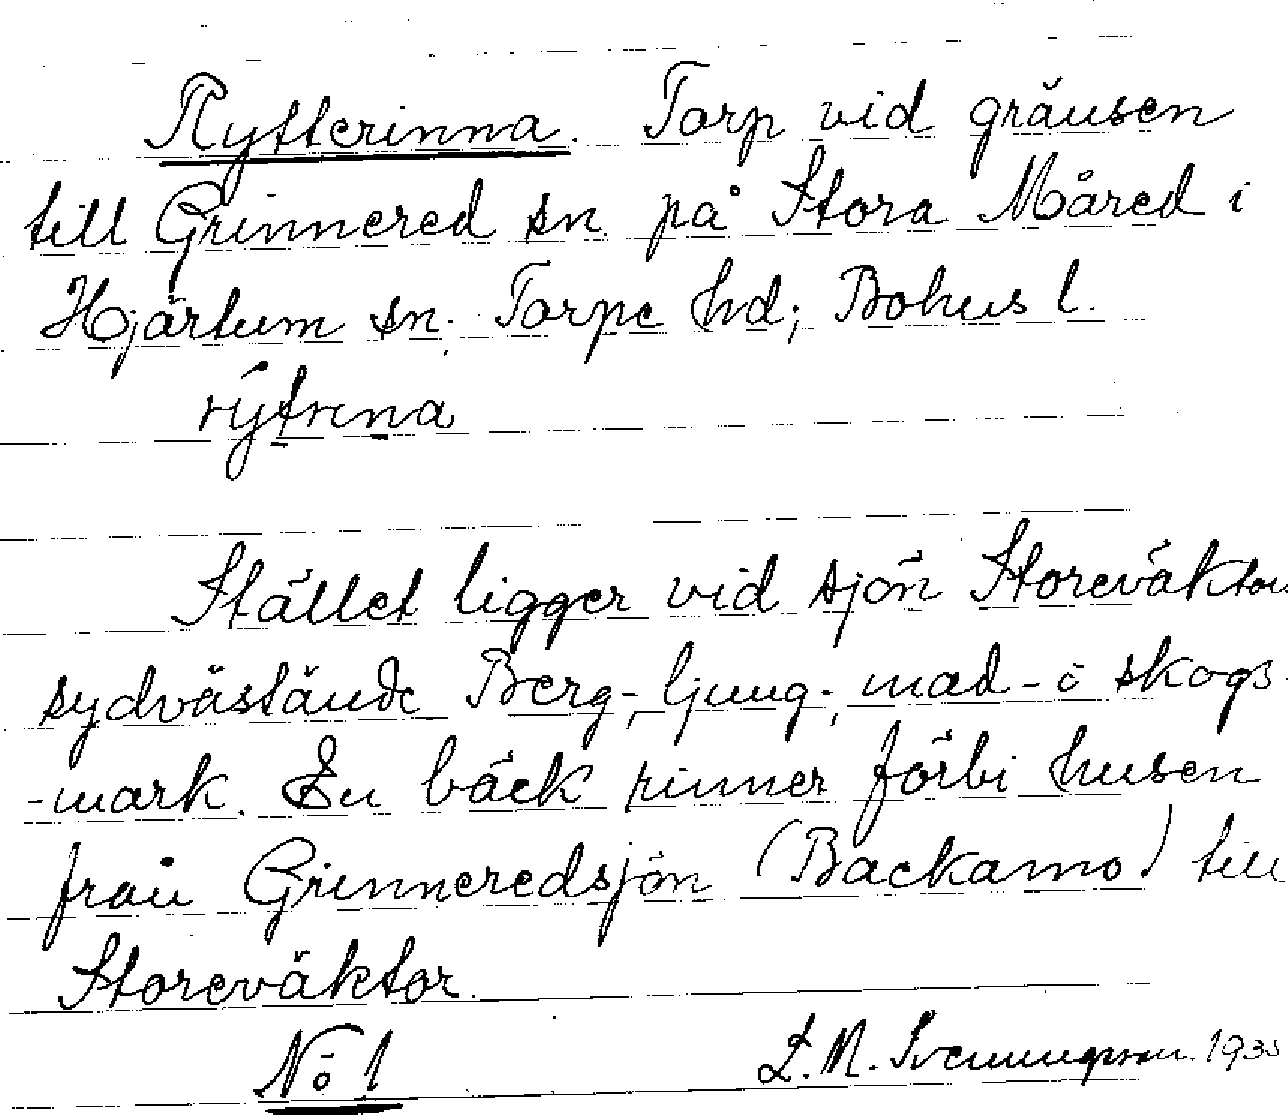 Ryfterinna. Torp vid gränsen
till Grinnered sn. på Stora Måred i
Hjärtum sn. Torpe hd; Bohus l.
rýfrena
Stället ligger vid sjön Storeväktor
sydvästände Berg-, ljung-, mad- o skogs-
-mark. En bäck rinner förbi husen
från Grinneredsjön (Backamo) till
Storeväktor.
No 1 L. M. Svenungsson. 1935